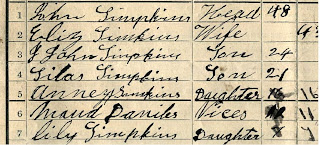 1 John Simpkins Head 48
2 Eliz Simpkins Wife
3 J John Simpkins Son 24
4 Silas Simpkins Son 21
5 Anney Simpkins Daughter 16
6 Maud Daniels Niece 11
7 Lily Simpkins Daughter 7